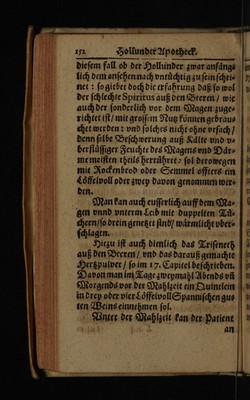 152 Hollunder Apotheck.
diesem fall ob der Hollunder zwar anfängs
lich dem ansehen nach vntüchtig zu sein schei-
net: so giebet doch die erfahrung daß so wol
der schlechte Spiritus auß den Beeren / wie
auch der sonderlich vor dem Magen zuge-
richtet ist / mit grossem Nutz können gebrau-
chet werden: vnd solches nicht ohne vrsach /
denn solbe Beschwerung auß Kälte vnd v-
berflüssiger Feuchte des Magens vnd Där-
me meisten theils herrühret: sol derowegen
mit Rockenbrod oder Semmel offters ein
Löffelvoll oder zwey davon genommen wer-
den.
Man kan auch eusserlich auff dem Ma-
gen vnnd vnterm Leib mit duppelten Tü-
chern / so drein genetzt sind / wärmlicht vber-
schlagen.
Hiezu ist auch dienlich das Triseneth
auß den Beeren / vnd das darauß gemachte
Hertzpulver / so im 17. Capitel beschrieben.
Davon man im Tage zweymahl Abends vñ
Morgends vor der Mahlzeit ein Quintlein
in drey oder vier Löffelvoll Spannischen gus
ten Weins einnehmen sol.
Vnter der Mahlzeit kan der Patient
an